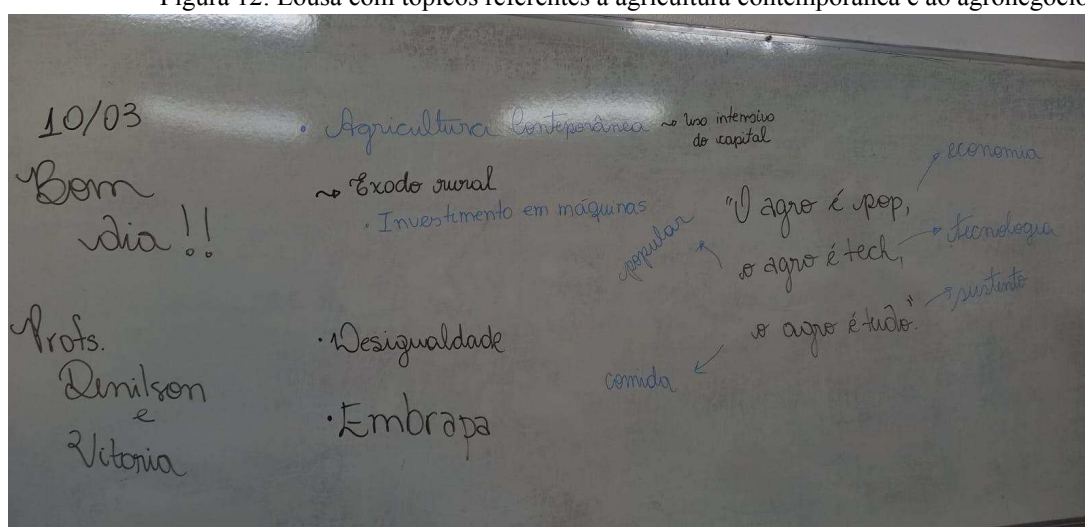 Figura 12: Lousa com tópicos referentes à agricultura contemporânea e ao agronegócio
10/03
Bom
dia!!
Profs.
Denilson
e
Vitoria
• Agricultura Conteporânea ~> Uso intensivo
do capital
~> Exodo rural
• Investimento em máquinas
• Desigualdade
• Embrapa
"O agro é pop,
o agro é tech,
o agro é tudo."
economia
popular
tecnologia
sustento
comida